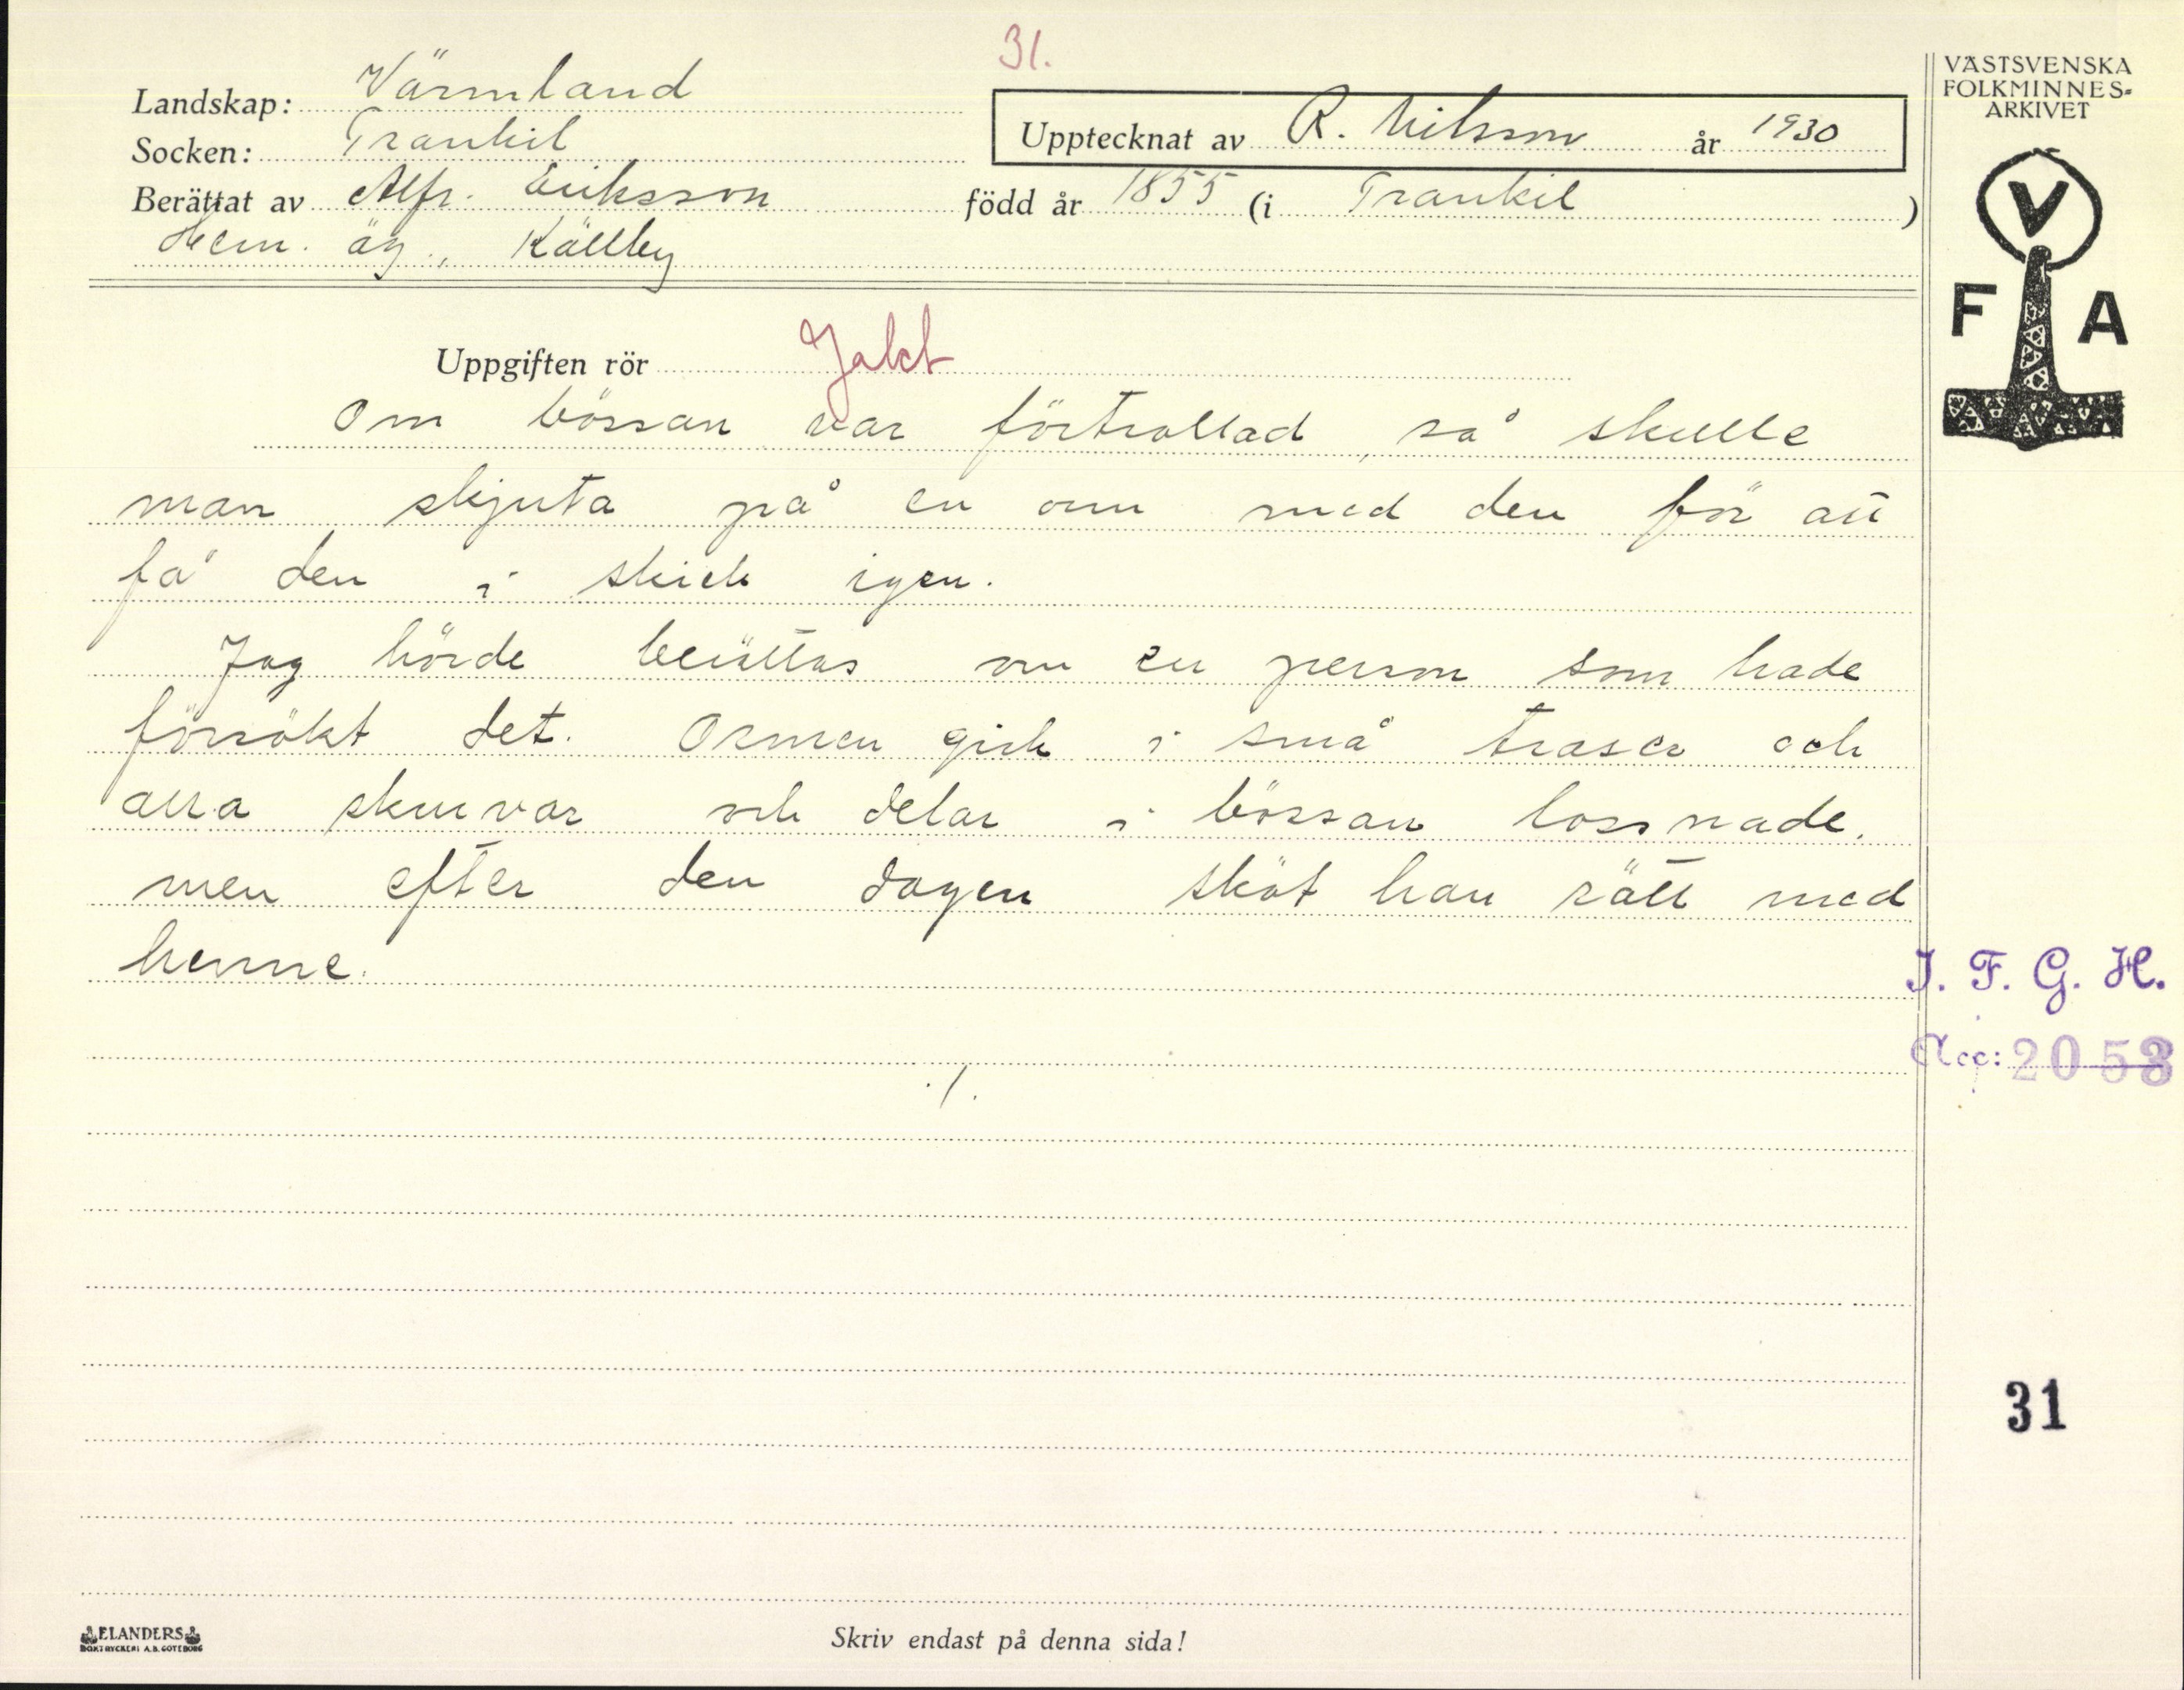 31.
Landskap: Värmland
Socken: Trankil
Upptecknat av R. Nilsson år 1930
Berättat av Alfr. Eriksson född år 1855 (i Trankil )
Hem. äg., Källby
VÄSTSVENSKA
FOLKMINNES-
ARKIVET
V
F A
Uppgiften rör Jakt
Om bössan var förtrollad, så skulle
man skjuta på en orm med den för att
få den i skick igen.
Jag hörde berättas om en person som hade
försökt det. Ormen gick i små trasor och
alla skruvar och delar i bössan lossnade.
men efter den dagen sköt han rätt med
henne.
I. F. G. H.
Acc: 2053
./.
31
ELANDERS
BOKTRYCKERI A.B. GÖTEBORG
Skriv endast på denna sida!